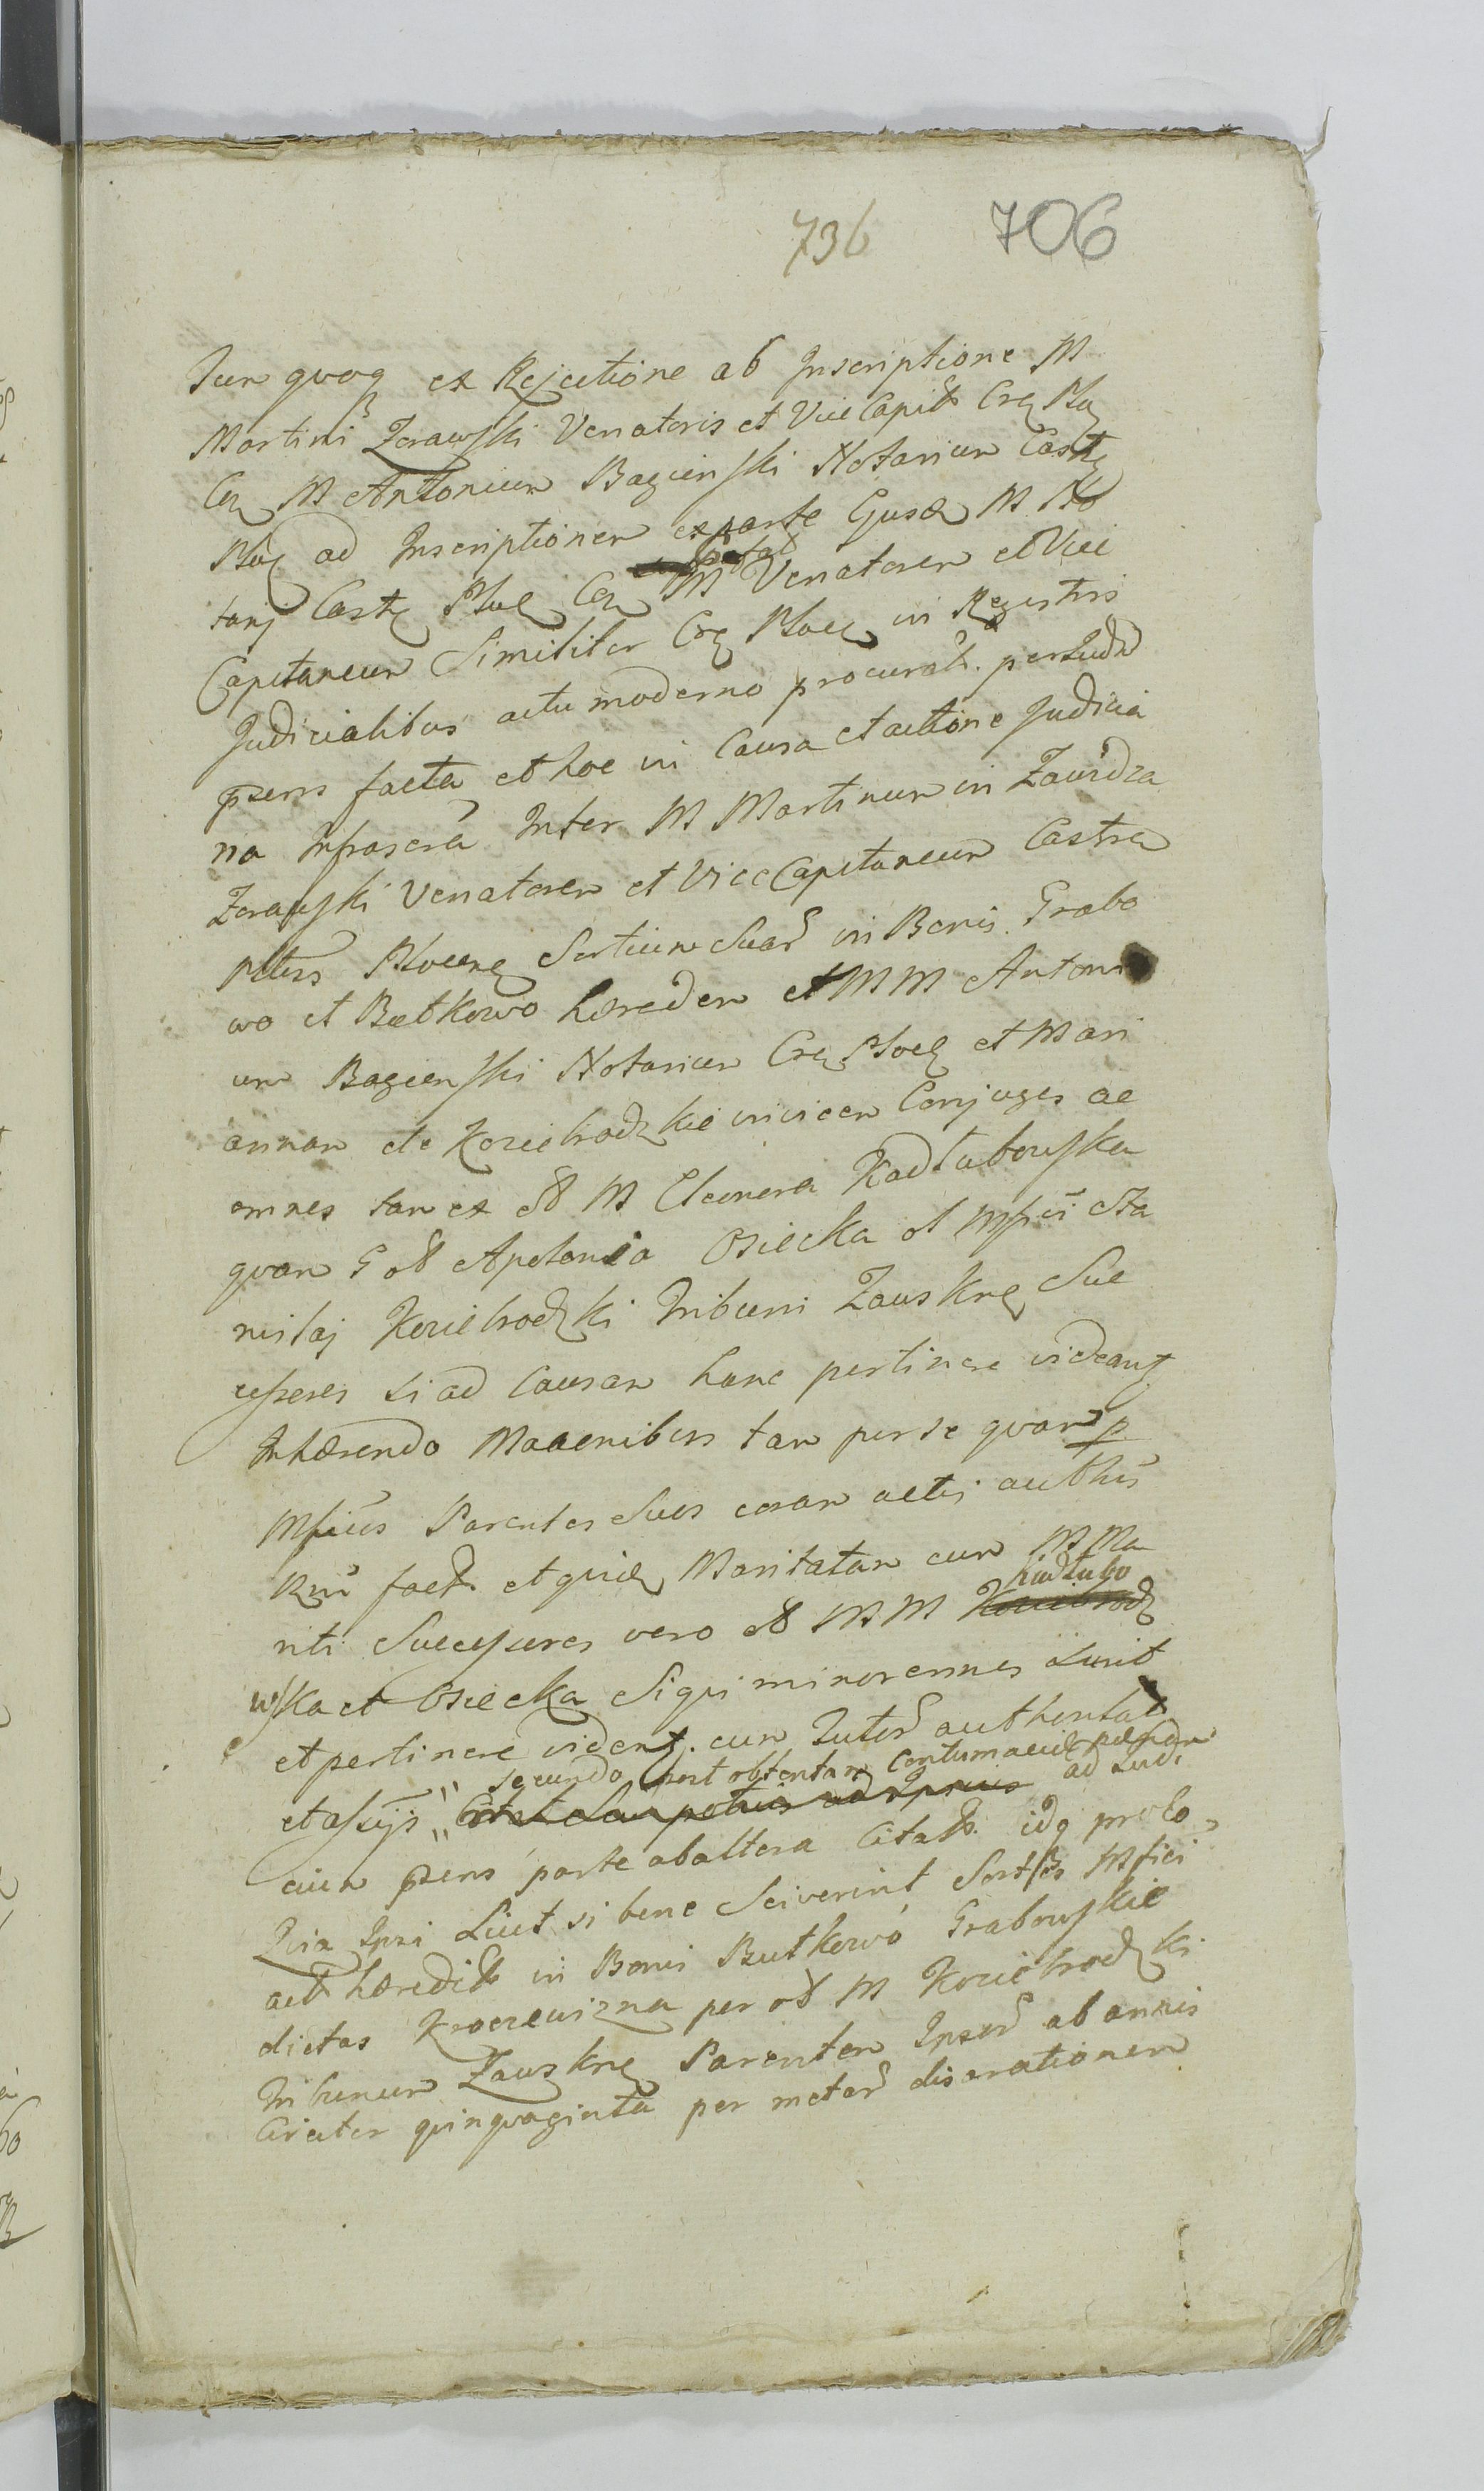 736 706
Tum quoq ex Rejectione ab Inscriptione M
Martini Zorawski Venatoris et Vice Capit Cre Plo
Cu M Antonium Bagienski Notarium Castr
Ploc ad Inscriptionem exparte Ejusd M No
tarij Castr Ploc Cu M Venatorem et Vice
Capitaneum Similiter Cre Ploc in Regestris
Judicialibus actu moderno procurat. per Judm
psens facta et hoc in Causa et actione Judicia
na Infrascra Inter M Martinum in Zawidza
Zorawski Venatorem et ViceCapitaneum Castrem
Plocens Sortium Suar in Bonis Grabo
wo et Butkowo hæredem et MM Antoni
um Bagienski Notarium Cre Ploc et Mari
annam de Koziebrodzkie invicem Conjuges ac
omnes tam ex olt M Eleonora Kadłubowska
quam G olt Apolonia Osiecka ol Mfci Sta
nislaj Koziebrodzki Tribuni Zauskrn Suc
cessores si ad Causam hanc pertinere videant
Inhærendo tam per se quam p
Mficos Parentes Suos coram actis authcis
Rni fact et quid Maritatam cum M Ma
riti Successores vero olt MM Koziebrodz
kadłubo
wska et Osiecka Siqui minorennes Sunt
et pertinere vident. cum Tutor authentat
secundo post obtentam Contumaciæ pœnam
et assijs ad Judi
cium psens parte ab altera Citat. idq pro Eo,
Quia Ipsi Licet si bene Sciverint Sortes Mfici
act hæredit in Bonis Butkowo Grabowskie
dictas Kroczewizna per olt M Koziebrodzki
Tribunum Zauskrn Parentem Ipsor ab annis
Circiter quinquaginta per metar disarationem